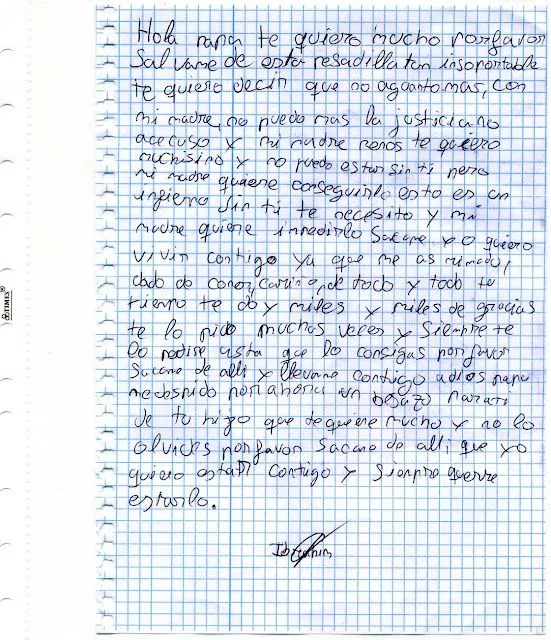 Hola papa te quiero mucho porfavor
Salvame de esta pesadilla tan insoportable
te quiero decir que no aguanto mas, con
mi madre, no puedo mas la justicia no
acecuso y mi madre menos te quiero
muchisimo y no puedo estar sin ti pero
mi madre quiere conseguirlo esto es un
infierno sin ti te necesito y mi
madre quiere impedirlo Sacame yo quiero
vivir contigo ya que me as mimado,
dado de comer, cariño, de todo y todo tu
tiempo te doy miles y miles de gracias
te lo pido muchas veces y siempre te
lo pedire asta que lo consigas porfavor
Sacame de alli y llevame contigo adios papa
me despido por ahora un besazo para ti
de tu higo que te quiere mucho y no lo
olvides porfavor Sacame de alli que yo
quiero estar contigo y siempre querre
estarlo.
Ibrahim